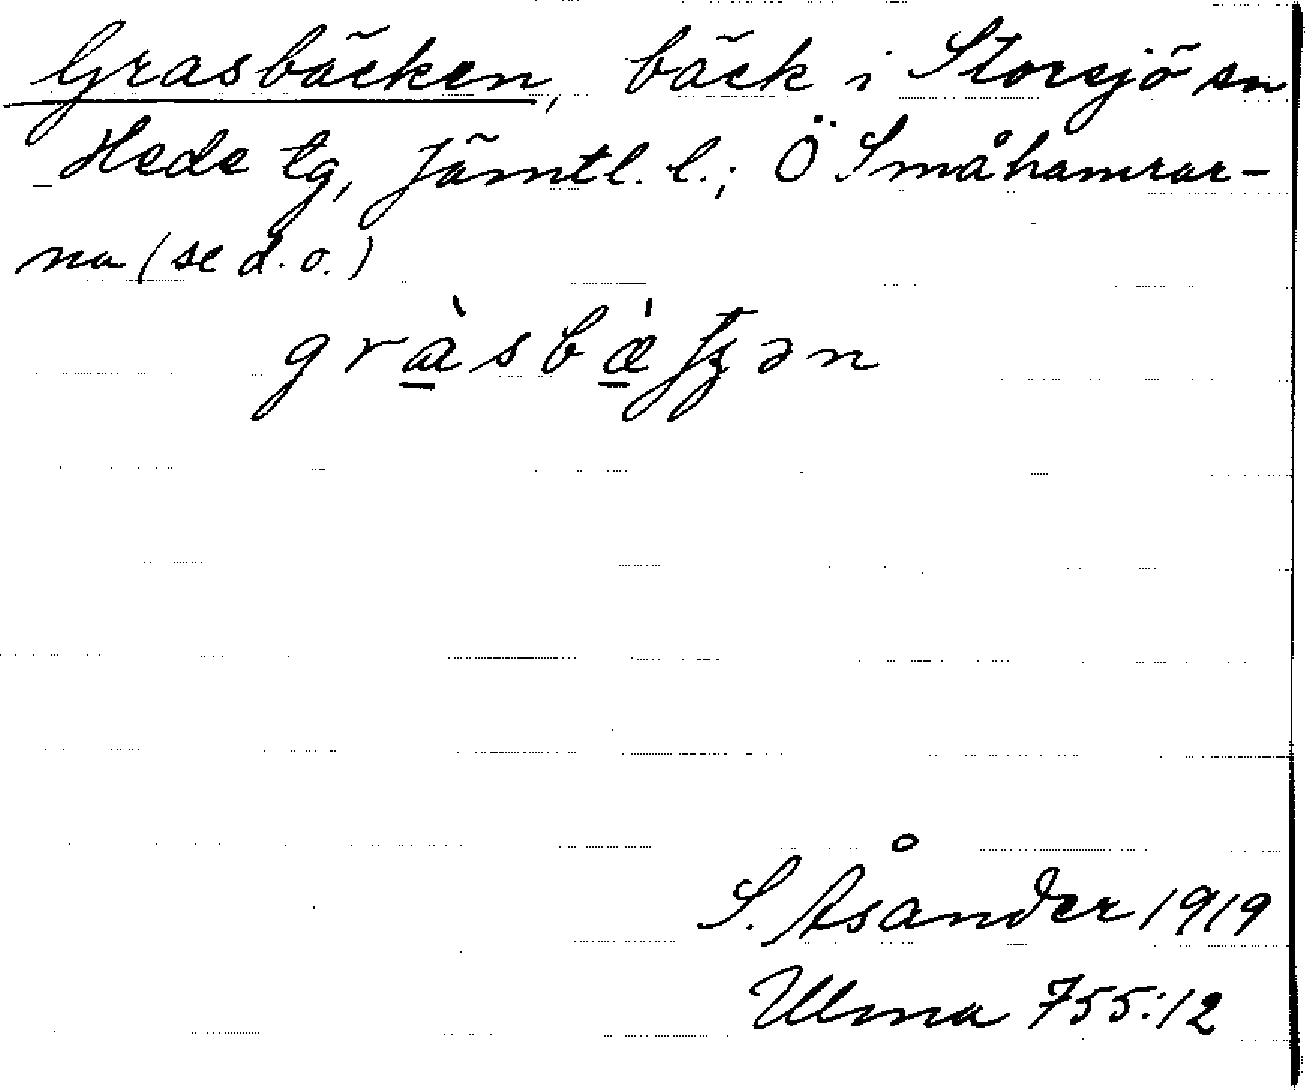 Grasbäcken, bäck i Storsjö sn
Hede tg, Jämtl. l.; Ö Småhamrar-
na (se d. o.)
S. Åsander 1919
Ulma 755:12